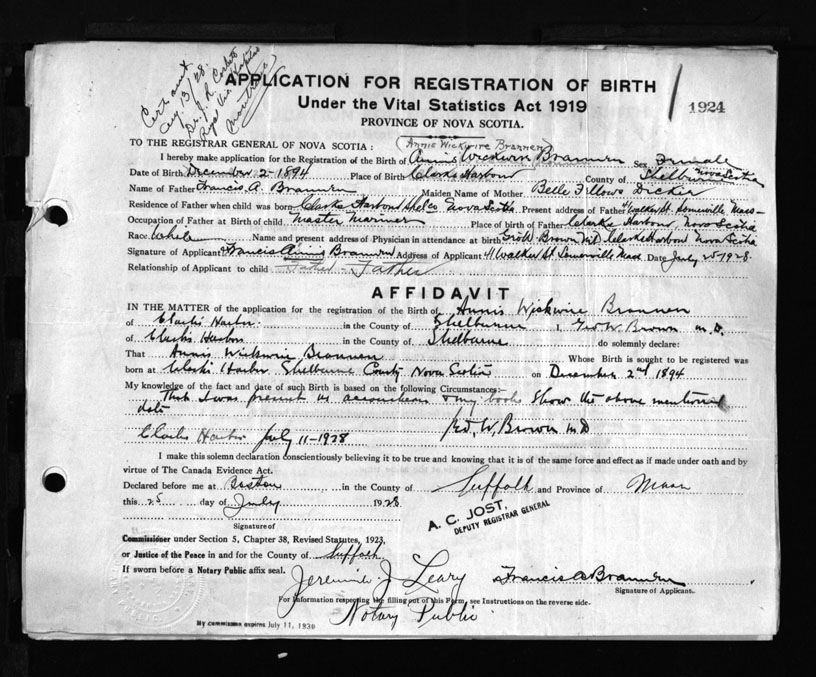 Cert. sent
Aug 13/28.
Dr. J. R. Corbett
Royal Vic Hospital
Montreal
APPLICATION FOR REGISTRATION OF BIRTH
1924
Under the Vital Statistics Act 1919
PROVINCE OF NOVA SCOTIA.
TO THE REGISTRAR GENERAL OF NOVA SCOTIA : (Annie Wickwire Brannen)
I hereby make application for the Registration of the Birth of Annis Wickwire Brannen Sex Female
Date of Birth December 2-1894 Place of Birth Clarks Harbour County of Shelburne Nova Scotia
Name of Father Francis A. Brannen Maiden Name of Mother Belle Fillows Dicker
Residence of Father when child was born Clarks Harbour Shel Co Nova Scotia Present address of Father 41 Walker St. Somerville, Mass-
Occupation of Father at Birth of child Master Mariner Place of birth of Father Clarks Harbour, Nova Scotia
Race Name and present address of Physician in attendance at birth Geo W. Brown M.D. Clarks Harbour Nova Scotia
Signature of Applicant Francis Annis Brannen Address of Applicant 41 Walker St Somerville Mass. Date July 25-1928.
Relationship of Applicant to child Father - Father
AFFIDAVIT
IN THE MATTER of the application for the registration of the Birth of Annis Wickwire Brannen
of Clarks Harbor in the County of Shelburne I, Geo W. Brown M.D.
of Clarks Harbor in the County of Shelburne do solemnly declare:
That Annis Wickwire Brannen Whose Birth is sought to be registered was
born at Clarks Harbor Shelburne County Nova Scotia on December 2nd 1894
My knowledge of the fact and date of such Birth is based on the following Circumstances:—
That I was present as accoucheur & my books show the above mentioned
date
Clarks Harbor July 11-1928 Geo. W. Brown M.D
I make this solemn declaration conscientiously believing it to be true and knowing that it is of the same force and effect as if made under oath and by
virtue of The Canada Evidence Act.
Declared before me at Boston in the County of Suffolk and Province of Mass
this 25 day of July 1928
A. C. JOST,
DEPUTY REGISTRAR GENERAL
Signature of
Commissioner under Section 5, Chapter 38, Revised Statutes, 1923,
or Justice of the Peace in and for the County of Suffolk
If sworn before a Notary Public affix seal.
Jeremiah J. Leary Francis A Brannen
Signature of Applicant.
For Information respecting the filling out of this Form, see Instructions on the reverse side.
Notary Public
My commission expires July 11, 1930